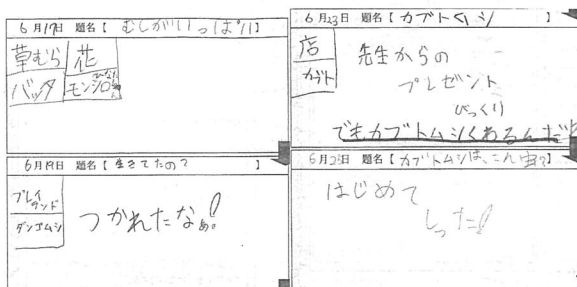 6月17日 題名【 むしがいっぱい 】
草むら 花
バッタ モンシロ
6月19日 題名【 生きてたの? 】
プレイランド
ダンゴムシ
つかれたなぁ!
6月23日 題名【 カブトムシ 】
店
カブト
先生からの
プレゼント
びっくり
でもカブトムシくあるんだ
6月25日 題名【 カブトムシは、こん虫? 】
はじめて
しった!